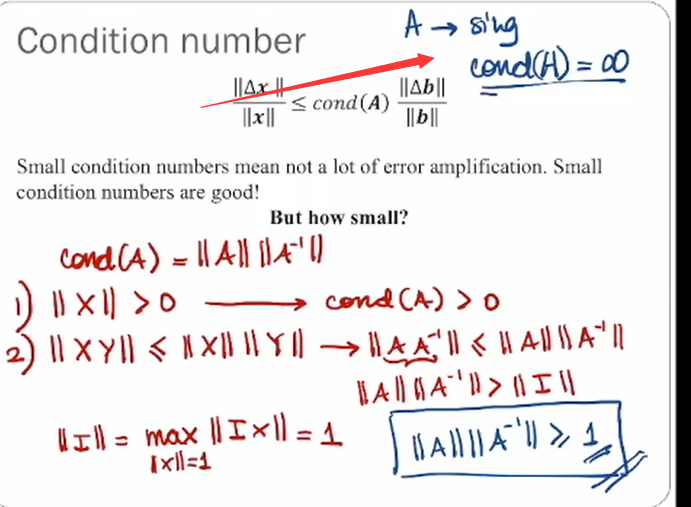 Condition number
A → sing
cond(A) = ∞
‖Δx‖/‖x‖ ≤ cond(A) ‖Δb‖/‖b‖
Small condition numbers mean not a lot of error amplification. Small
condition numbers are good!
But how small?
cond(A) = ‖A‖ ‖A⁻¹‖
1) ‖X‖ > 0 → cond(A) > 0
2) ‖XY‖ ≤ ‖X‖ ‖Y‖ → ‖A A⁻¹‖ ≤ ‖A‖ ‖A⁻¹‖
‖A‖ ‖A⁻¹‖ > ‖I‖
‖I‖ = max ‖Ix‖ = 1
‖x‖=1
‖A‖ ‖A⁻¹‖ ≥ 1